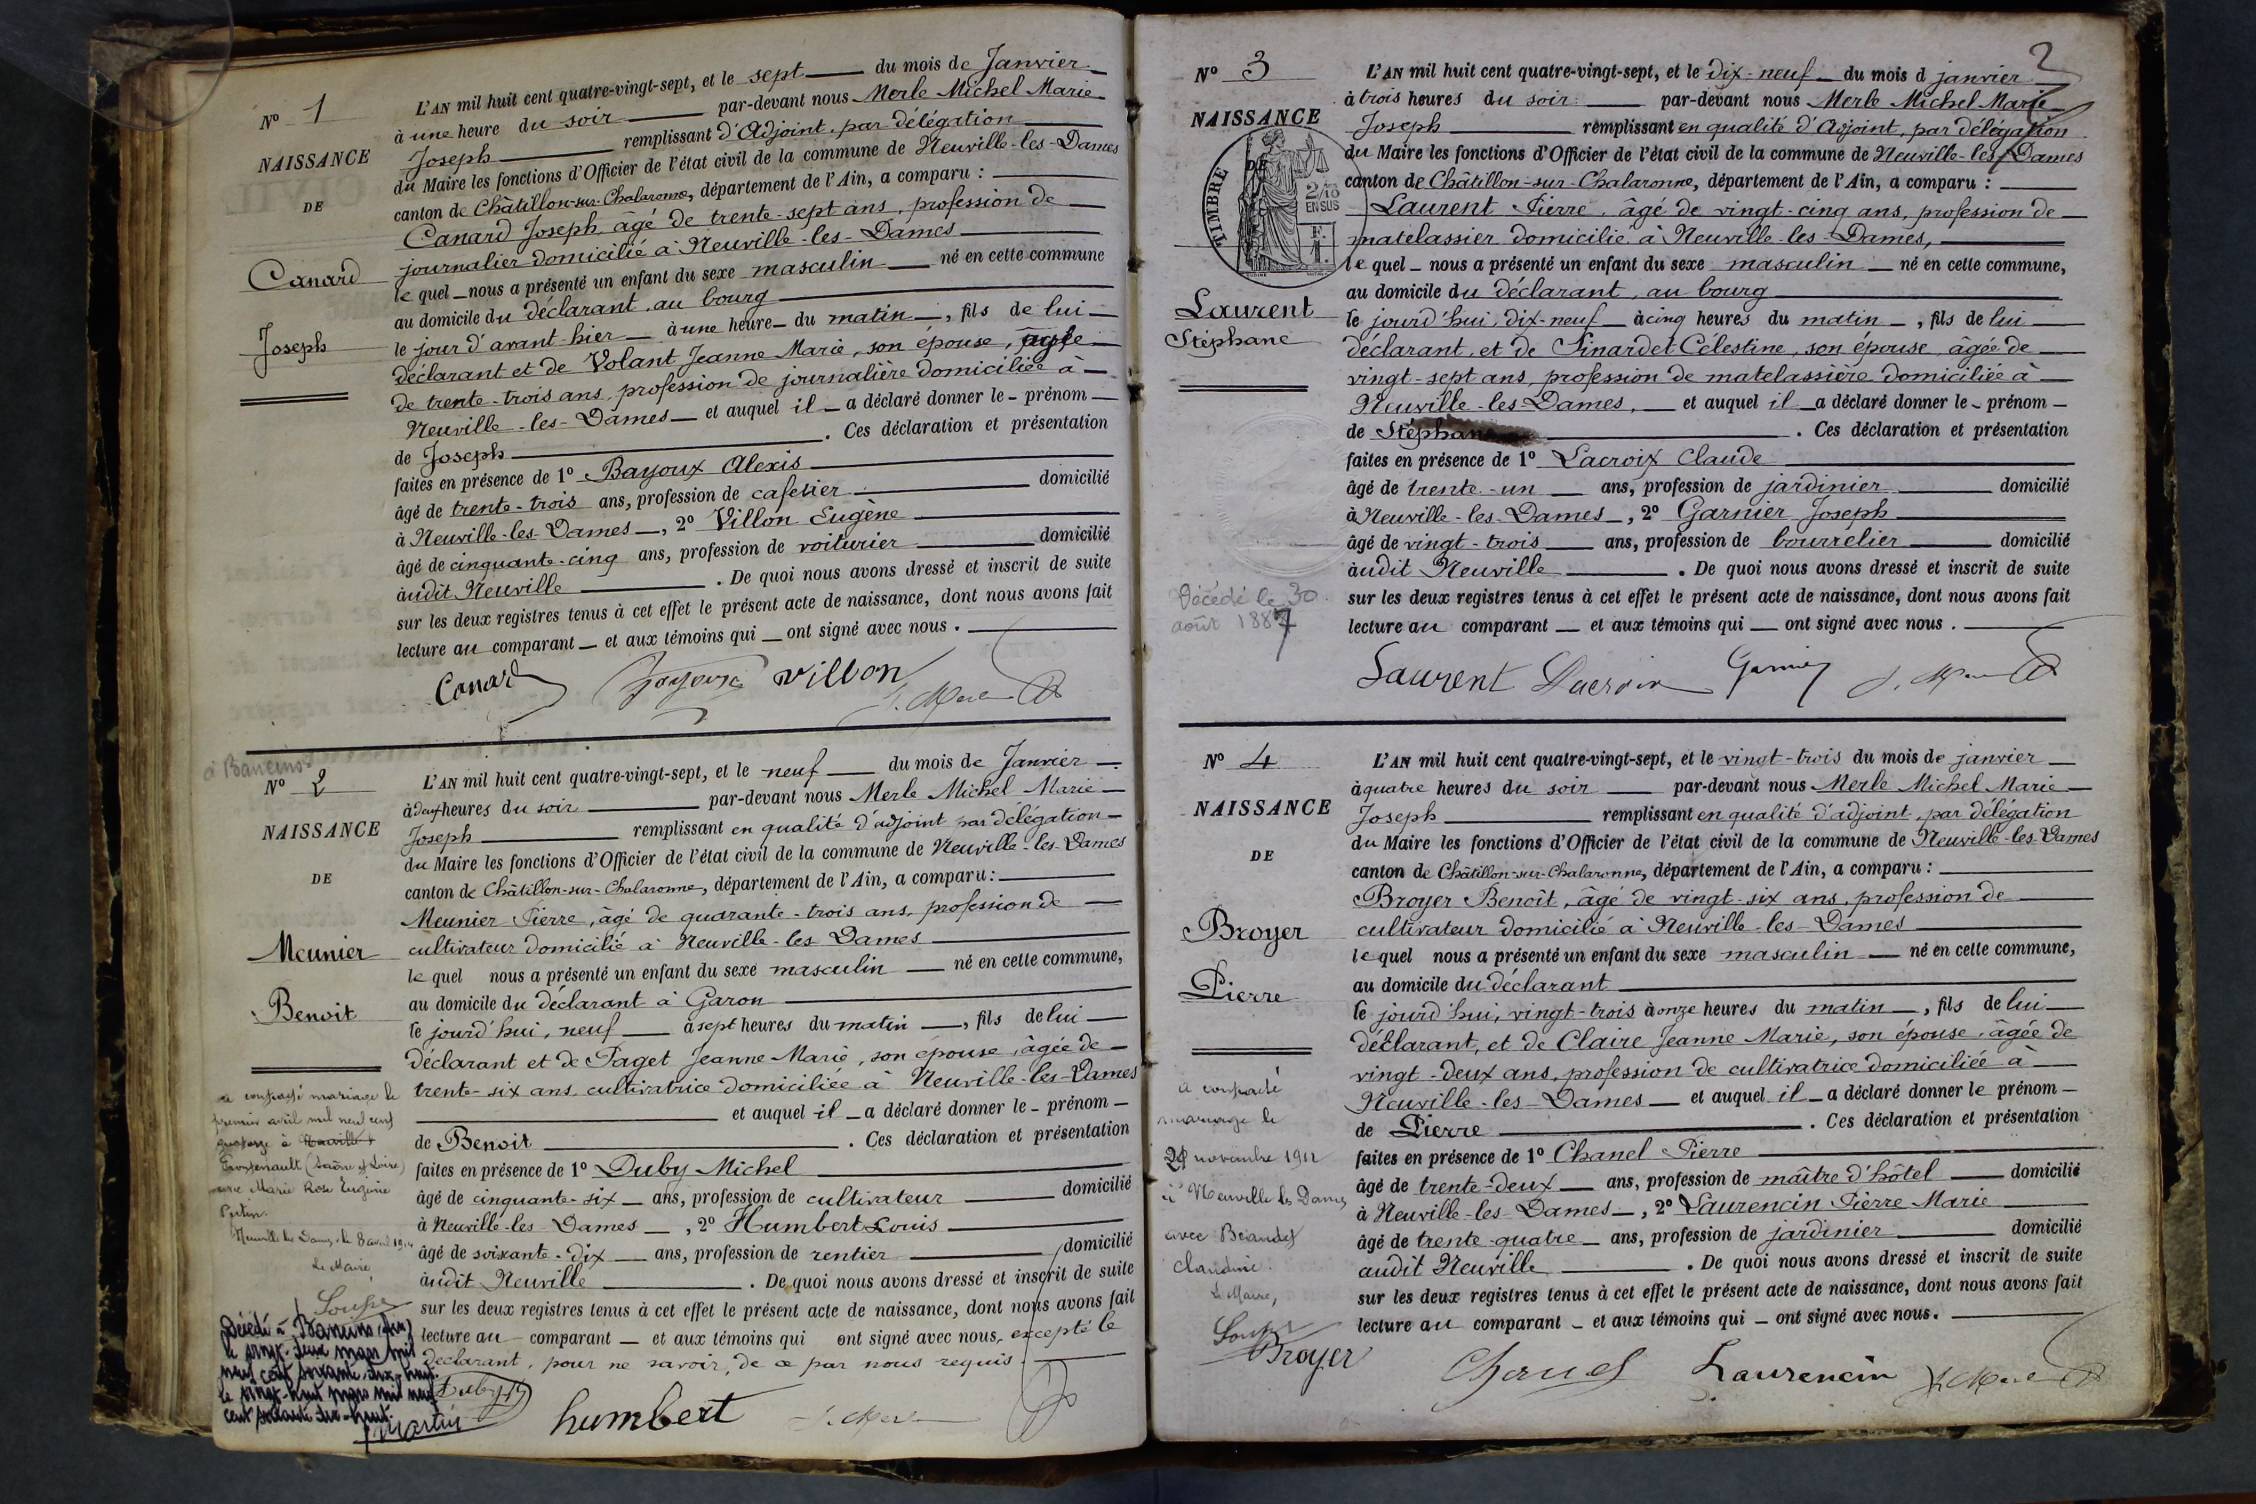 N° 1
NAISSANCE
DE
Canard
Joseph
L'AN mil huit cent quatre-vingt-sept, et le sept du mois de Janvier
à une heure du soir par-devant nous Merle Michel Marie
Joseph remplissant d'Adjoint, par délégation
du Maire les fonctions d'Officier de l'état civil de la commune de Neuville-les-Dames
canton de Châtillon-sur-Chalaronne, département de l'Ain, a comparu :
Canard Joseph, âgé de trente-sept ans, profession de
journalier domicilié à Neuville-les-Dames
le quel nous a présenté un enfant du sexe masculin né en cette commune
au domicile du déclarant, au bourg
le jour d'avant-hier à une heure du matin, fils de lui
déclarant et de Volant Jeanne Marie, son épouse, âgée
de trente-trois ans, profession de journalière domiciliée à
Neuville-les-Dames et auquel il a déclaré donner le prénom
de Joseph. Ces déclaration et présentation
faites en présence de 1° Bayoux Alexis
âgé de trente-trois ans, profession de cafetier domicilié
à Neuville-les-Dames, 2° Villon Eugène
âgé de cinquante-cinq ans, profession de voiturier domicilié
audit Neuville. De quoi nous avons dressé et inscrit de suite
sur les deux registres tenus à cet effet le présent acte de naissance, dont nous avons fait
lecture au comparant et aux témoins qui ont signé avec nous.
Canard Bayoux Villon J. Merle
à Baneins
N° 2
NAISSANCE
DE
Meunier
Benoit
a contracté mariage le
premier avril mil neuf cent
quatorze à Neuville
(Saône et Loire)
avec Marie Rose Eugénie
Neuville les Dames, le 8 avril 1914
Le Maire,
Soupe
Décédé à Baneins (Ain)
le vingt-deux mars mil
neuf cent soixante-dix-huit.
le vingt-huit mars mil neuf
cent soixante dix-huit.
Martin
L'AN mil huit cent quatre-vingt-sept, et le neuf du mois de Janvier
à deux heures du soir par-devant nous Merle Michel Marie
Joseph remplissant en qualité d'adjoint par délégation
du Maire les fonctions d'Officier de l'état civil de la commune de Neuville-les-Dames
canton de Châtillon-sur-Chalaronne, département de l'Ain, a comparu :
Meunier Pierre, âgé de quarante-trois ans, profession de
cultivateur domicilié à Neuville-les Dames
le quel nous a présenté un enfant du sexe masculin né en cette commune,
au domicile du déclarant à Garon
le jourd'hui, neuf à sept heures du matin, fils de lui
déclarant et de Paget Jeanne Marie, son épouse, âgée de
trente-six ans, cultivatrice domiciliée à Neuville-les-Dames
et auquel il a déclaré donner le prénom
de Benoit. Ces déclaration et présentation
faites en présence de 1° Duby Michel
âgé de cinquante-six ans, profession de cultivateur domicilié
à Neuville-les Dames, 2° Humbert Louis
âgé de soixante-dix ans, profession de rentier domicilié
audit Neuville. De quoi nous avons dressé et inscrit de suite
sur les deux registres tenus à cet effet le présent acte de naissance, dont nous avons fait
lecture au comparant et aux témoins qui ont signé avec nous, excepté le
déclarant, pour ne savoir, de ce par nous requis.
Duby humbert J. Merle
2
N° 3
NAISSANCE
DE
TIMBRE
2/10 EN SUS
Laurent
Stéphane
Décédé le 30
août 1887
L'AN mil huit cent quatre-vingt-sept, et le dix-neuf du mois d janvier
à trois heures du soir par-devant nous Merle Michel Marie
Joseph remplissant en qualité d'Adjoint, par délégation
du Maire les fonctions d'Officier de l'état civil de la commune de Neuville-les-Dames
canton de Châtillon-sur-Chalaronne, département de l'Ain, a comparu :
Laurent Pierre, âgé de vingt-cinq ans, profession de
matelassier domicilié à Neuville-les-Dames,
le quel nous a présenté un enfant du sexe masculin né en cette commune,
au domicile du déclarant, au bourg
le jourd'hui, dix-neuf à cinq heures du matin, fils de lui
déclarant, et de Pinardel Célestine, son épouse, âgée de
vingt-sept ans, profession de matelassière domiciliée à
Neuville-les-Dames, et auquel il a déclaré donner le prénom
de Stéphane. Ces déclaration et présentation
faites en présence de 1° Lacroix Claude
âgé de trente-un ans, profession de jardinier domicilié
à Neuville-les-Dames, 2° Garnier Joseph
âgé de vingt-trois ans, profession de bourrelier domicilié
audit Neuville. De quoi nous avons dressé et inscrit de suite
sur les deux registres tenus à cet effet le présent acte de naissance, dont nous avons fait
lecture au comparant et aux témoins qui ont signé avec nous.
Laurent Lacroix Garnier J. Merle
N° 4
NAISSANCE
DE
Broyer
Pierre
a contracté
mariage le
novembre 1912
à Neuville les Dames
avec
Claudine.
Le Maire,
Soupe
L'AN mil huit cent quatre-vingt-sept, et le vingt-trois du mois de janvier
à quatre heures du soir par-devant nous Merle Michel Marie
Joseph remplissant en qualité d'adjoint, par délégation
du Maire les fonctions d'Officier de l'état civil de la commune de Neuville-les-Dames
canton de Châtillon-sur-Chalaronne, département de l'Ain, a comparu :
Broyer Benoît, âgé de vingt-six ans, profession de
cultivateur domicilié à Neuville-les-Dames
le quel nous a présenté un enfant du sexe masculin né en cette commune,
au domicile du déclarant
le jourd'hui, vingt-trois à onze heures du matin, fils de lui
déclarant, et de Claire Jeanne Marie, son épouse, âgée de
vingt-deux ans, profession de cultivatrice domiciliée à
Neuville-les-Dames et auquel il a déclaré donner le prénom
de Pierre. Ces déclaration et présentation
faites en présence de 1° Chanel Pierre
âgé de trente-deux ans, profession de maître d'hôtel domicilié
à Neuville-les-Dames, 2° Laurencin Pierre Marie
âgé de trente-quatre ans, profession de jardinier domicilié
audit Neuville. De quoi nous avons dressé et inscrit de suite
sur les deux registres tenus à cet effet le présent acte de naissance, dont nous avons fait
lecture au comparant et aux témoins qui ont signé avec nous.
Broyer Chanel Laurencin J. Merle